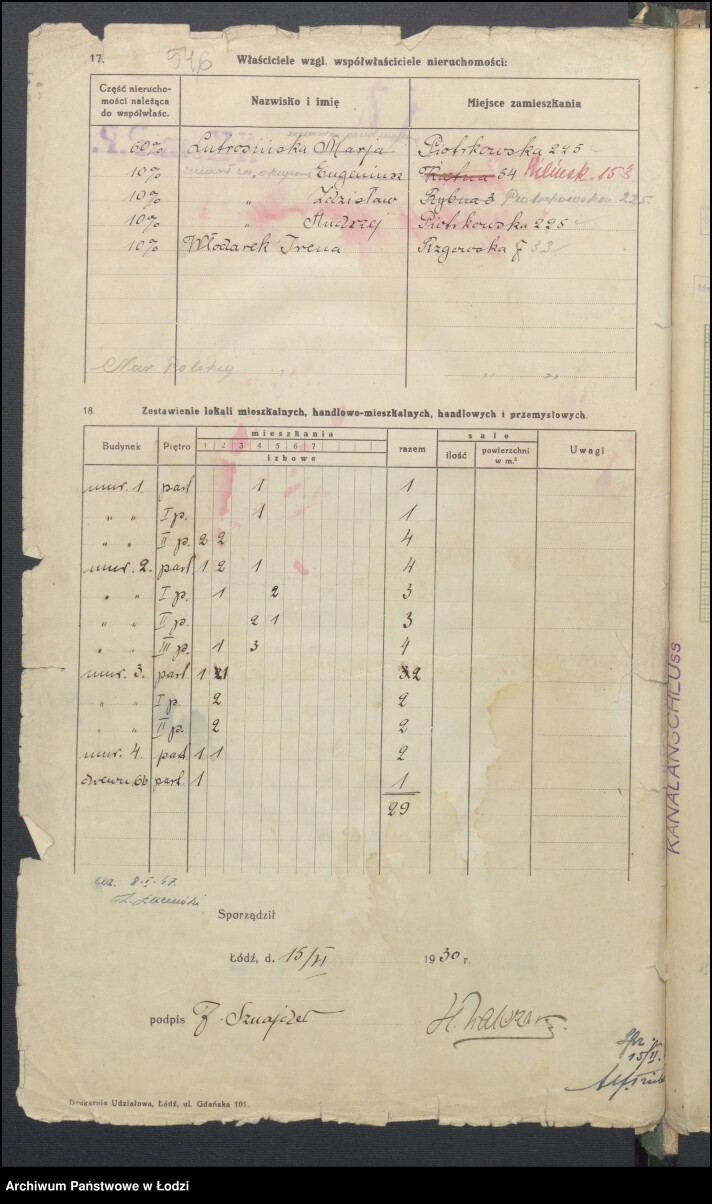 17. 546 Właściciele wzgl. współwłaściciele nieruchomości:
Część nierucho-
mości należąca
do współwłaśc.
Nazwisko i imię
Miejsce zamieszkania
60% Lutrosińska Marja Piotrkowska 225
10% „ Eugeniusz 54 Kilińsk. 153
10% „ Zdzisław Rybna 3 Piotrkowska 225
10% „ Andrzej Piotrkowska 225
10% Włodarek Irena Rzgowska 7 33
Nar. Polscy „ „ „
18. Zestawienie lokali mieszkalnych, handlowo-mieszkalnych, handlowych i przemysłowych.
Budynek Piętro mieszkania razem sale Uwagi
1 2 3 4 5 6 7
izbowe
ilość powierzchni
w m.²
mur. 1. part. 1 1
„ „ I p. 1 1
„ „ II p. 2 2 4
mur. 2. part. 1 2 1 4
„ „ I p. 1 2 3
„ „ II p. 2 1 3
„ „ III p. 1 3 4
mur. 3. part. 1 1 2
„ „ I p. 2 2
„ „ II p. 2 2
mur. 4. part. 1 1 2
drewn. 6b part. 1 1
29
8.I.47.
Sporządził
Łódź, d. 15/VI 1930 r.
podpis F. Sznajder
15/VI.
Drukarnia Udziałowa, Łódź, ul. Gdańska 101.
KANALANSCHLUSS
Archiwum Państwowe w Łodzi